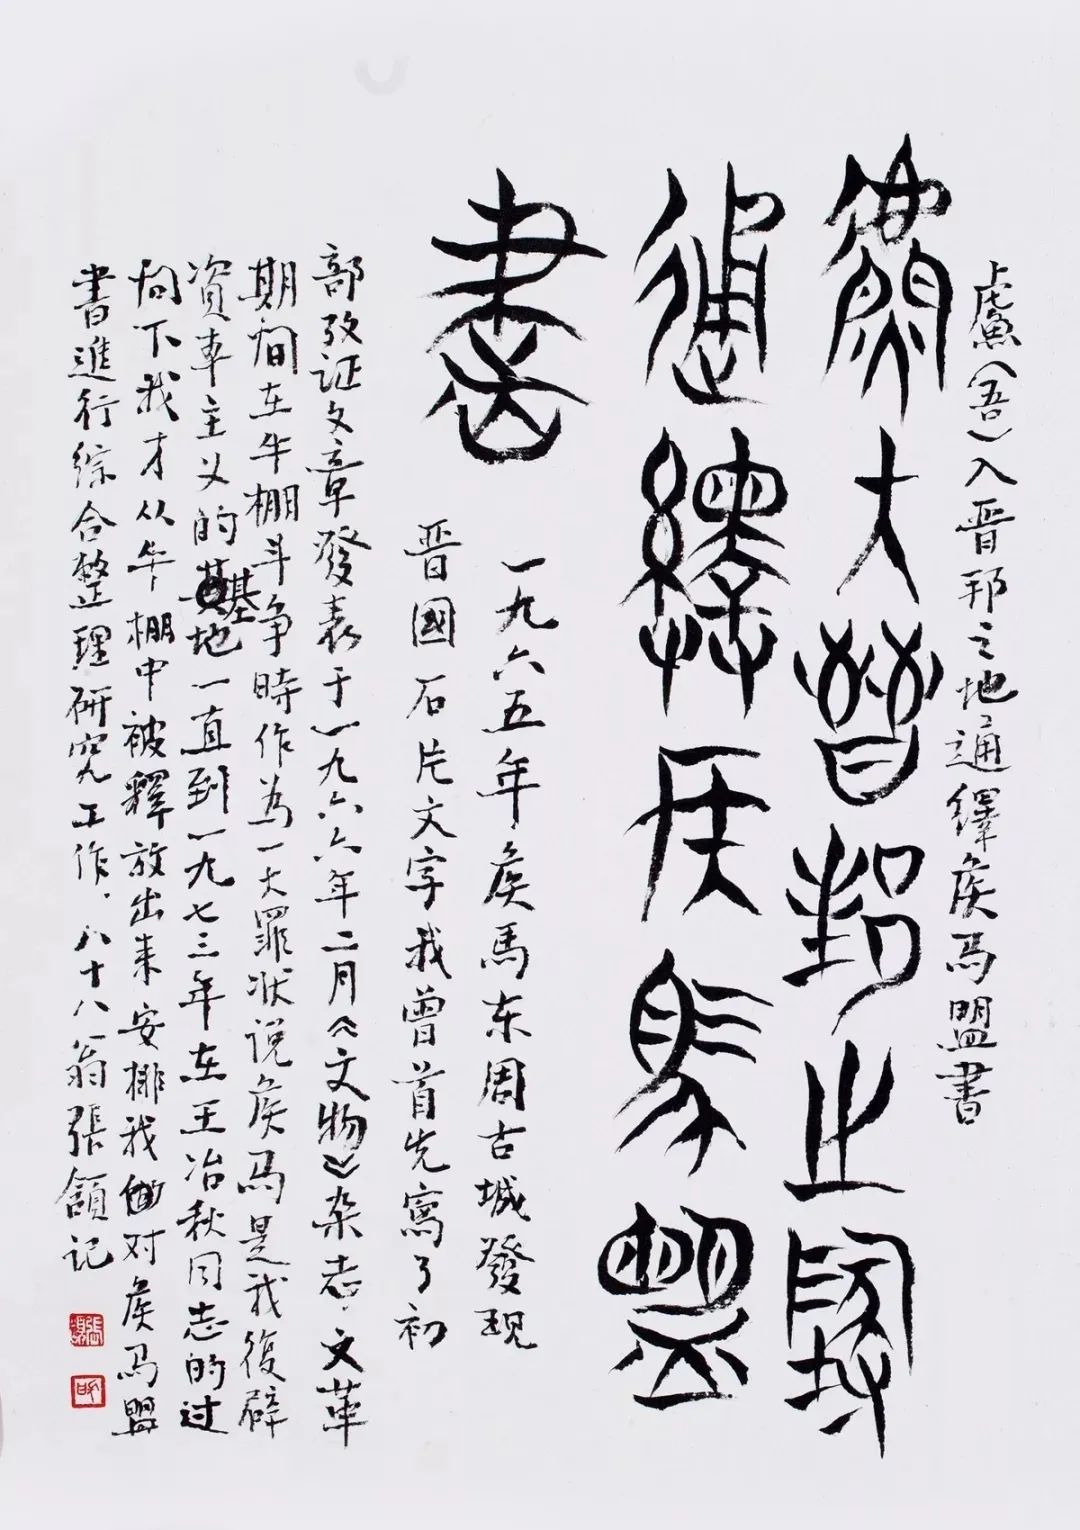 虞(吾)入晋邦之地通繹侯马盟書
入晋邦之地
通繹侯馬盟
書
一九六五年侯馬东周古城發现
晋國石片文字我曾首先寫了初
部攷证文章發表于一九六六年二月《文物》杂志,文革
期间在牛棚斗争時作為一大罪状说侯马是我復辟
资本主义的基地一直到一九七三年在王冶秋同志的过
问下我才从牛棚中被釋放出来安排我对侯马盟
書進行综合整理研究工作、八十八翁張頷记
張頷